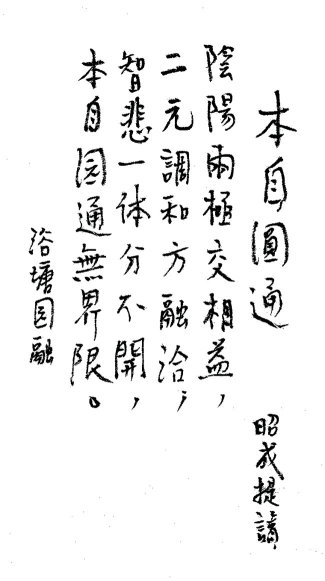 本自圓通
昭成提讀
陰陽兩極交相益，
二元調和方融洽；
智悲一体分不開，
本自圆通無界限。
浴塘圆融